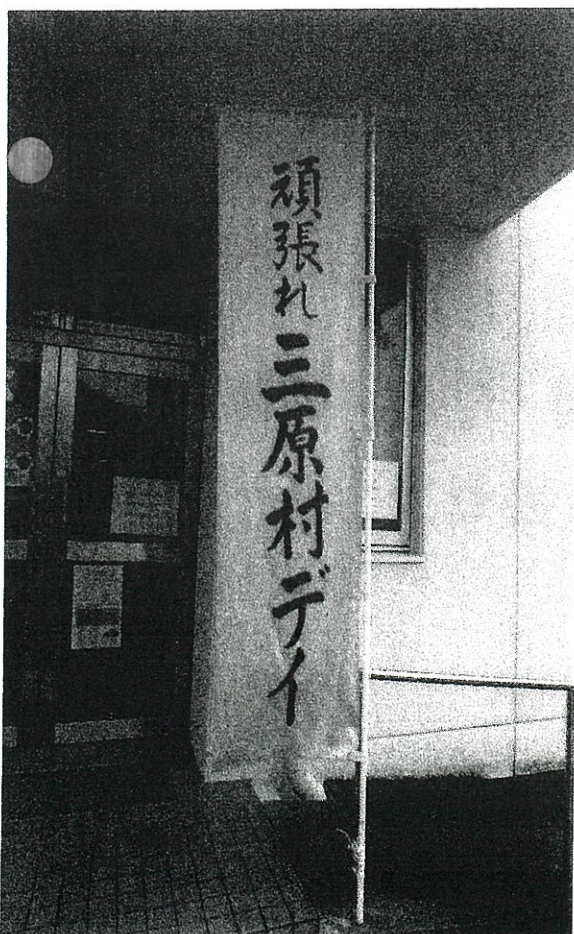 頑張れ三原村デイ